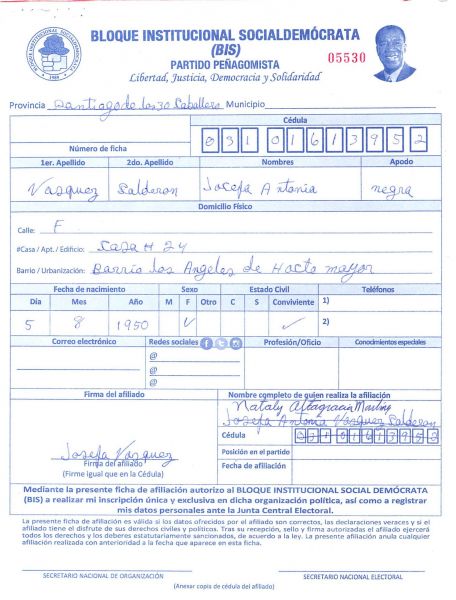 BLOQUE INSTITUCIONAL SOCIALDEMÓCRATA
(BIS)
05530
PARTIDO PEÑAGOMISTA
Libertad, Justicia, Democracia y Solidaridad
Provincia Santiago de los 30 Caballero Municipio
Cédula
Número de ficha 031 0161395 2
1er. Apellido 2do. Apellido Nombres Apodo
Vasquez Calderon Josefa Antonia negra
Domicilio Físico
Calle: F
#Casa / Apt. / Edificio: Casa # 24
Barrio / Urbanización: Barrio los Angeles de Hacto mayor
Fecha de nacimiento Sexo Estado Civil Teléfonos
Día Mes Año M F Otro C S Conviviente 1)
5 8 1950 ✓ ✓ 2)
Correo electrónico Redes sociales Profesión/Oficio Conocimientos especiales
@
@
@
Firma del afiliado Nombre completo de quien realiza la afiliación
Nataly Altagracia
Josefa Antonia Vasquez Calderon
Cédula 031 0161395 2
Josefa Vasquez
Posición en el partido
Firma del afiliado
Fecha de afiliación
(Firme igual que en la Cédula)
Mediante la presente ficha de afiliación autorizo al BLOQUE INSTITUCIONAL SOCIAL DEMÓCRATA
(BIS) a realizar mi inscripción única y exclusiva en dicha organización política, así como a registrar
mis datos personales ante la Junta Central Electoral.
La presente ficha de afiliación es válida si los datos ofrecidos por el afiliado son correctos, las declaraciones veraces y si el
afiliado tiene el disfrute de sus derechos civiles y políticos. Tras su recepción, sello y firma autorizadas el afiliado ejercerá
todos los derechos y los deberes estatutariamente sancionados, de acuerdo a la ley. La presente afiliación anula cualquier
afiliación realizada con anterioridad a la fecha que aparece en esta ficha.
SECRETARIO NACIONAL DE ORGANIZACIÓN SECRETARIO NACIONAL ELECTORAL
(Anexar copia de cédula del afiliado)